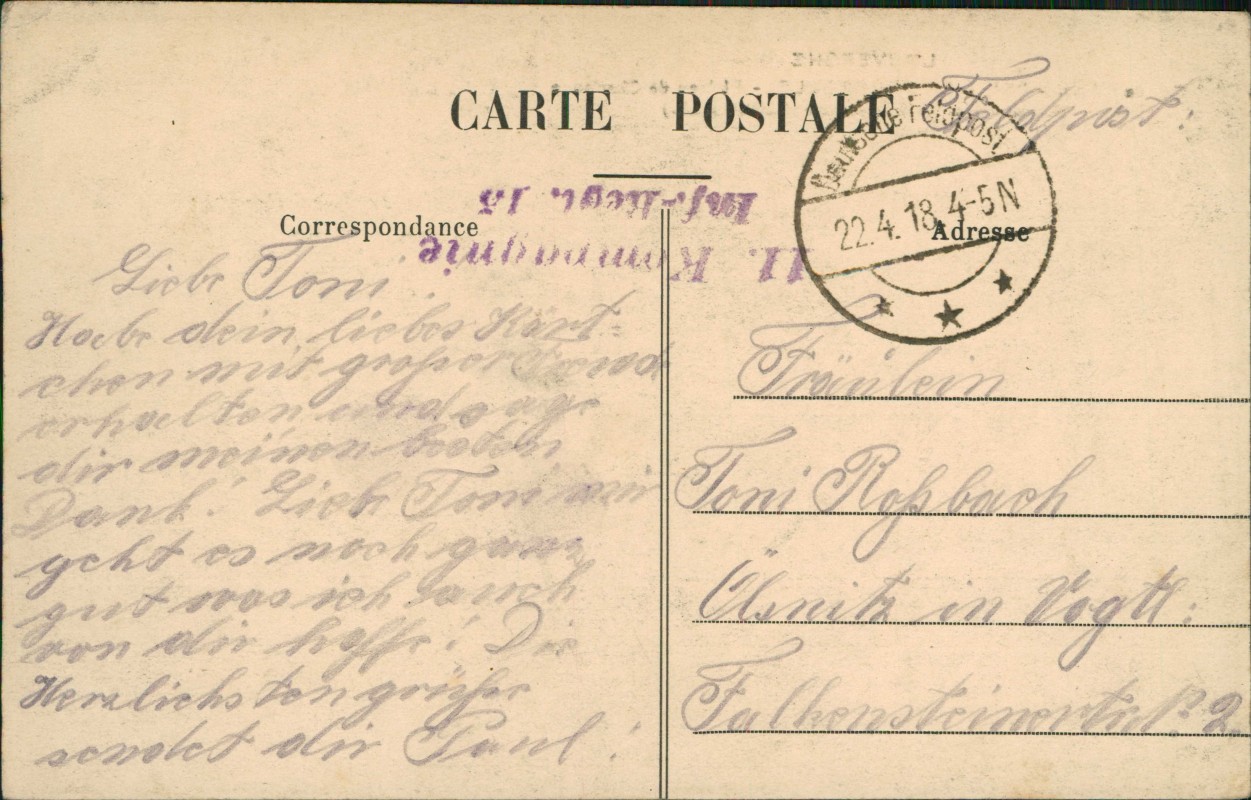 CARTE POSTALE
Feldpost.
Deutsche Feldpost
22.4.18 4-5N
Inf.-Regt. 15
11. Kompagnie
Correspondance
Adresse
Liebe Toni!
Habe dein liebes Kärt=
chen mit großer Freud
erhalten und sage
dir meinen besten
Dank! Liebe Toni mir
geht es noch ganz
gut was ich auch
von dir hoffe! Die
Herzlichsten grüße
sendet dir Paul!
Fräulein
Toni Roßbach
Ölsnitz in Vogtl:
Falkensteinerstr. 2.